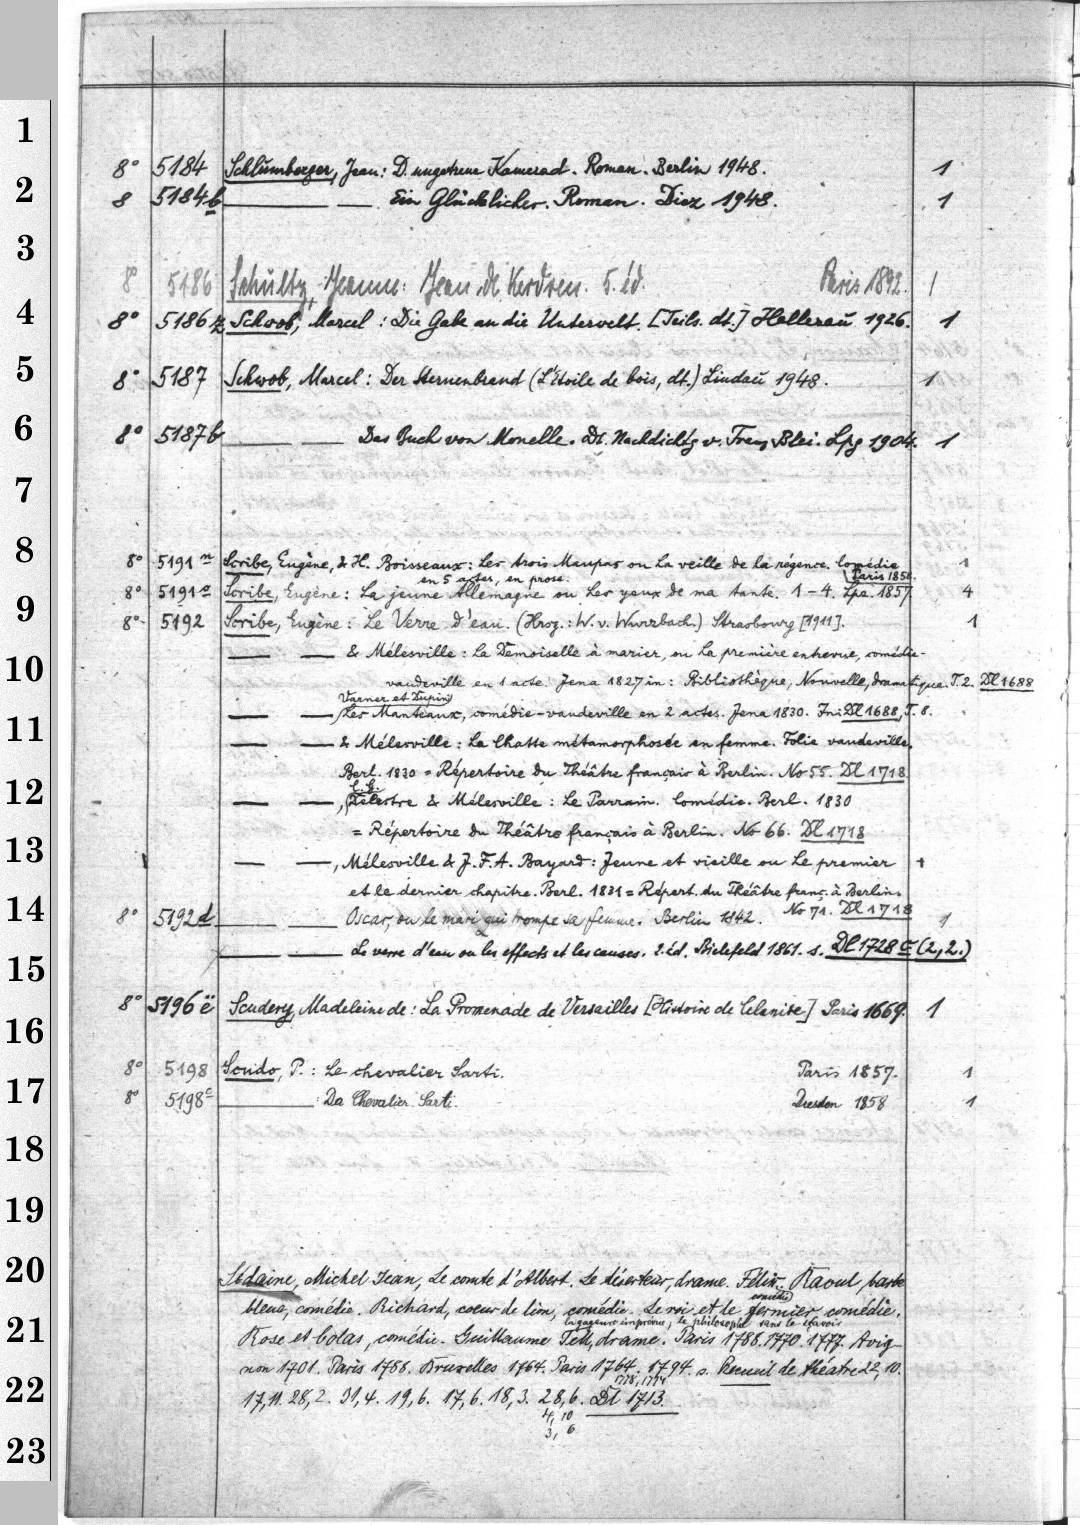 1
2
3
4
5
6
7
8
9
10
11
12
13
14
15
16
17
18
19
20
21
22
23
8° 5184 Schlumberger, Jean: D. ungetreue Kamerad. Roman. Berlin 1948. 1
8 5184b ——— —— Ein Glücklicher. Roman. Diez 1948. 1
8° 5186 Schultz, Jeanne: Jean de Kerdren. 5. éd. Paris 1892. 1
8° 5186z Schwob, Marcel: Die Gabe an die Unterwelt. [Teils. dt.] Hellerau 1926. 1
8° 5187 Schwob, Marcel: Der Sternenbrand (L'Etoile de bois, dt.) Lindau 1948. 1
8° 5187b ——— —— Das Buch von Monelle. Dt. Nachdichtg v. Franz Blei. Lpg 1904. 1
8° 5191n Scribe, Eugène, & H. Boisseaux: Les trois Maupas ou La veille de la régence. Comédie 1
en 5 actes, en prose. Paris 1858.
8° 5191 Scribe, Eugène: La jeune Allemagne ou Les yeux de ma tante. 1-4. Lpz. 1857 4
8° 5192 Scribe, Eugène: Le Verre d'eau. (Hrsg.: W. v. Wurzbach.) Strasbourg [1911]. 1
—— —— & Mélesville: La Demoiselle à marier, ou La première entrevue, comédie-
vaudeville en 1 acte. Jena 1827 in: Bibliothèque, Nouvelle, dramatique. T. 2. Dl 1688
Varner et Dupin
—— ——, Les Manteaux, comédie-vaudeville en 2 actes. Jena 1830. In: Dl 1688, T. 8.
—— —— & Mélesville: La Chatte métamorphosée en femme. Folie vaudeville.
Berl. 1830 = Répertoire du Théâtre français à Berlin. No 55. Dl 1718
—— ——, & Mélesville: Le Parrain. Comédie. Berl. 1830
= Répertoire du Théâtre français à Berlin. No 66. Dl 1718
—— ——, Mélesville & J. F. A. Bayard: Jeune et vieille ou Le premier +
et le dernier chapitre. Berl. 1831 = Répert. du Théâtre franç. à Berlin.
No 71. Dl 1718
8° 5192d —— —— Oscar, ou le mari qui trompe sa femme. Berlin 1842. 1
——— —— Le verre d'eau ou les effects et les causes. 2. éd. Bielefeld 1861. s. Dl 1728 c (2,2.)
8° 5196ë Scudery, Madeleine de: La Promenade de Versailles [Histoire de Celanire] Paris 1669. 1
8° 5198 Scudo, P.: Le chevalier Sarti. Paris 1857. 1
8° 5198c ——— : Da Chevalier Sarti. Dresden 1858 1
Sédaine, Michel Jean, Le comte d'Albert. Le déserteur, drame. Félix. Raoul, barbe
bleue, comédie. Richard, coeur de lion, comédie. Le roi et le fermier comédie.
la gageure imprévue, le philosophe sans le savoir comédie
Rose et Colas, comédie. Guillaume Tell, drame. Paris 1788. 1770. 1777. Avig
non 1701. Paris 1788. Bruxelles 1764. Paris 1764. 1794. s. Recueil de théatre 22, 10.
17,11. 28,2. 31,4. 19,6. 17,6. 18,3. 28,6. Dl 1713.
4, 10
3, 6